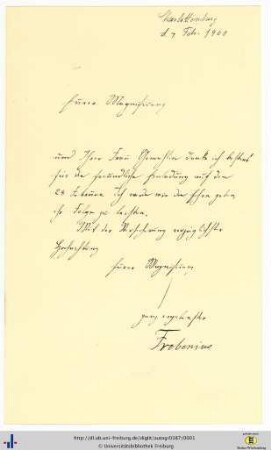 Charlottenburg
d. 7 Febr. 1900
Eurer Magnificenz
und Ihrer Frau Gemahlin danke ich bestens
für die freundliche Einladung auf den
24 Februar. Ich werde mir die Ehre geben
ihr Folge zu leisten.
Mit der Versicherung vorzüglichster
Hochachtung
Eurer Magnificenz
ganz ergebenster
Frobenius
© Universitätsbibliothek Freiburg